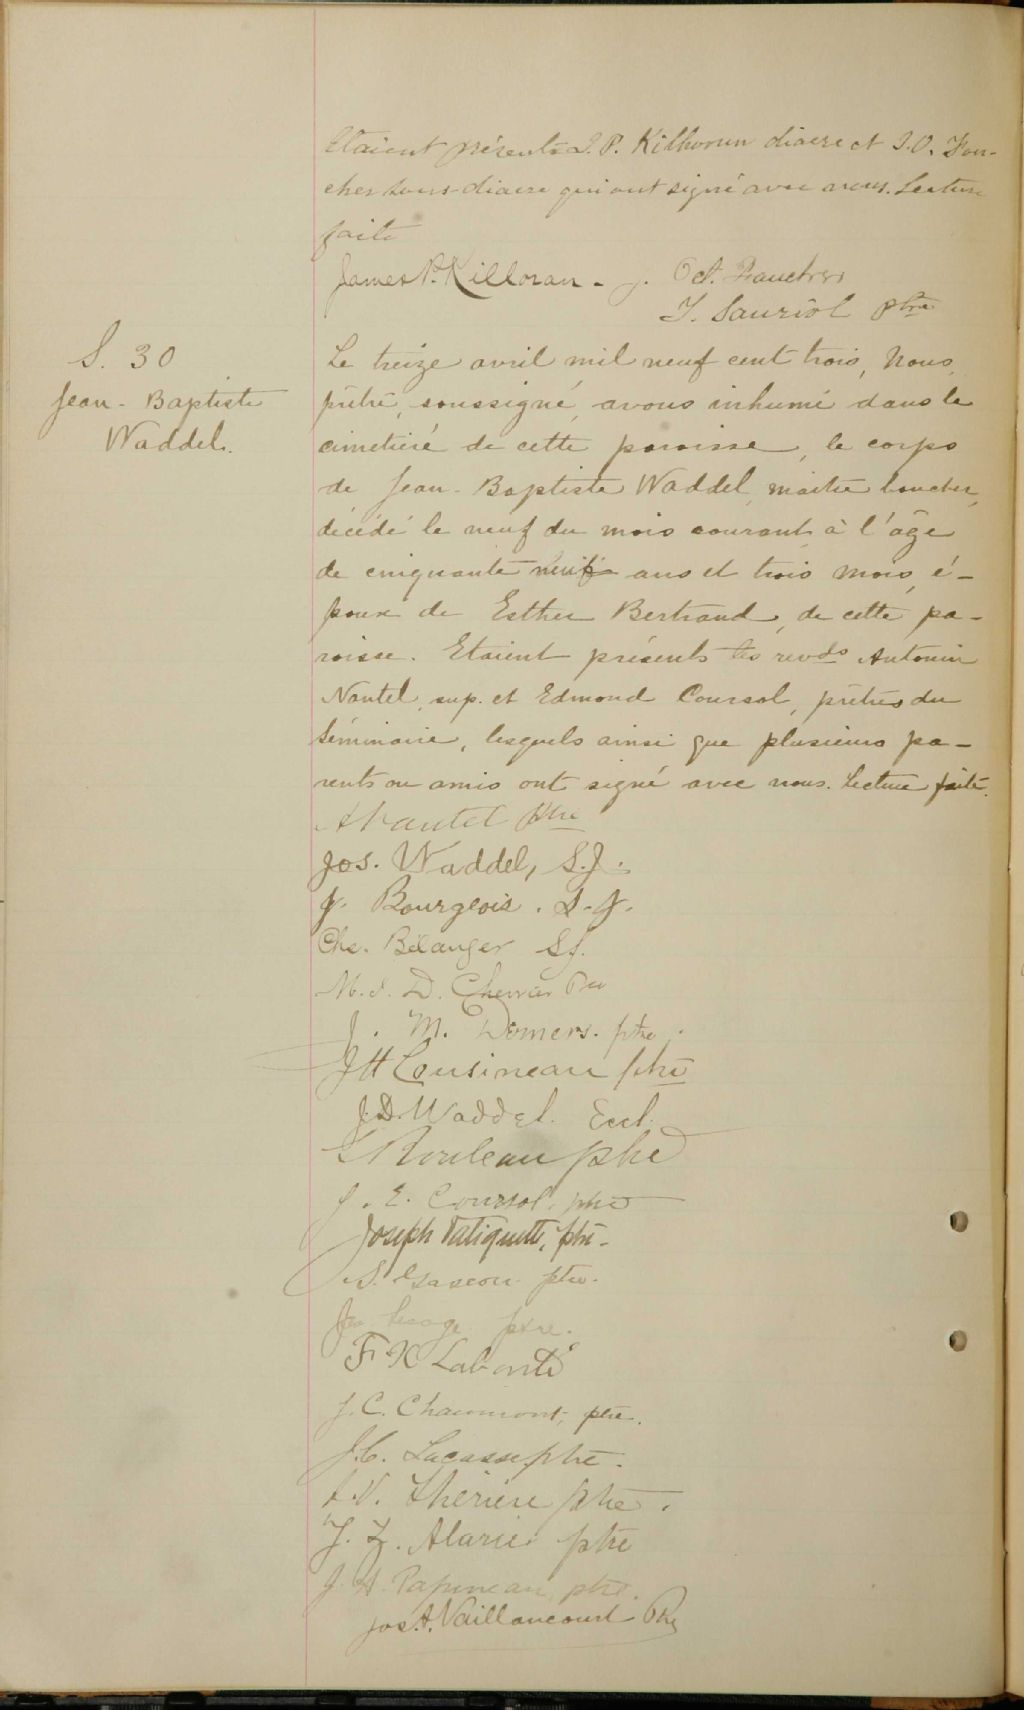 Etaient présents J. P. Kilhorun diacre et J.O. Fou-
cher sous-diacre qui ont signé avec nous. Lecture
faite
James P. Killoran - J. Oct. Faucher
T. Sauriol ptre
S. 30
Jean-Baptiste
Waddel.
Le treize avril mil neuf cent trois, Nous,
prêtre, soussigné, avons inhumé dans le
cimetière de cette paroisse, le corps
de Jean-Baptiste Waddel, maître boucher,
décédé le neuf du mois courant à l'âge
de cinquante neuf ans et trois mois, é-
poux de Esther Bertrand, de cette pa-
roisse. Etaient présents les revds Antonin
Nantel, sup. et Edmond Coursol, prêtres du
Séminaire, lesquels ainsi que plusieurs pa-
rents ou amis ont signé avec nous. Lecture faite.
A Nantel ptre
Jos. Waddel, S.J.
J. Bourgeois. S.J.
Chs. Bélanger S.J.
M. J. D. Cherrier
J. M. Demers. ptre.
J H Cousineau ptre
J.D. Waddel. Eccl.
Rouleau ptre
J. E. Coursol, ptre
Joseph Vatiquette, ptre -
S. Gascon ptre.
Lesage ptre.
F X Labonté
J. C. Chaumont, ptre.
J.C. Lacasse ptre.
Therien ptre.
J. Z. Alarie ptre
J. A. Papineau, ptre.
Jos. A. Vaillancourt Ptre